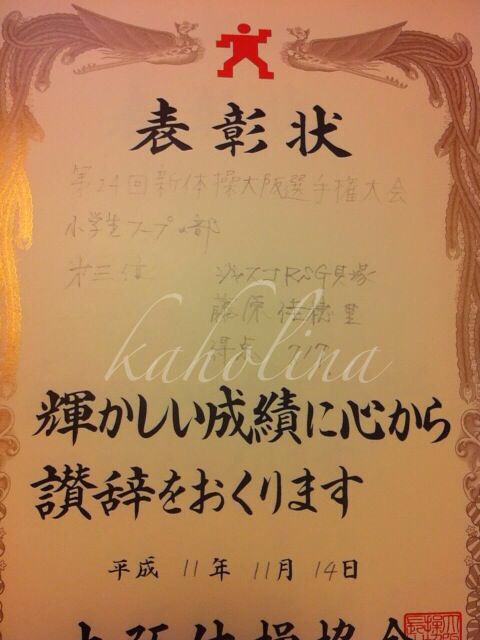 表彰状
第24回新体操大阪選手権大会
小学生フープの部
第三位 ジャスコRSG貝塚
藤原佳穂里
得点 7.17
kaholina
輝かしい成績に心から
讃辞をおくります
平成11年11月14日
大阪体操協会